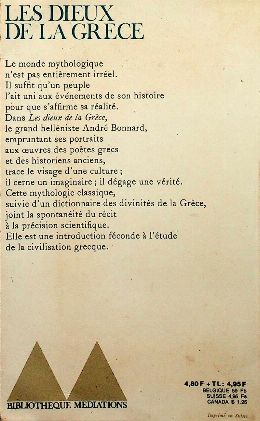 LES DIEUX
DE LA GRÈCE
Le monde mythologique
n'est pas entièrement irréel.
Il suffit qu'un peuple
l'ait uni aux événements de son histoire
pour que s'affirme sa réalité.
Dans Les dieux de la Grèce,
le grand helléniste André Bonnard,
empruntant ses portraits
aux œuvres des poètes grecs
et des historiens anciens,
trace le visage d'une culture ;
il cerne un imaginaire ; il dégage une vérité.
Cette mythologie classique,
suivie d'un dictionnaire des divinités de la Grèce,
joint la spontanéité du récit
à la précision scientifique.
Elle est une introduction féconde à l'étude
de la civilisation grecque.
4,80 F + TL : 4,95 F
BELGIQUE 55 Fb
SUISSE 4,95 Fs
CANADA $ 1.25
BIBLIOTHEQUE MEDIATIONS
Imprimé en Suisse